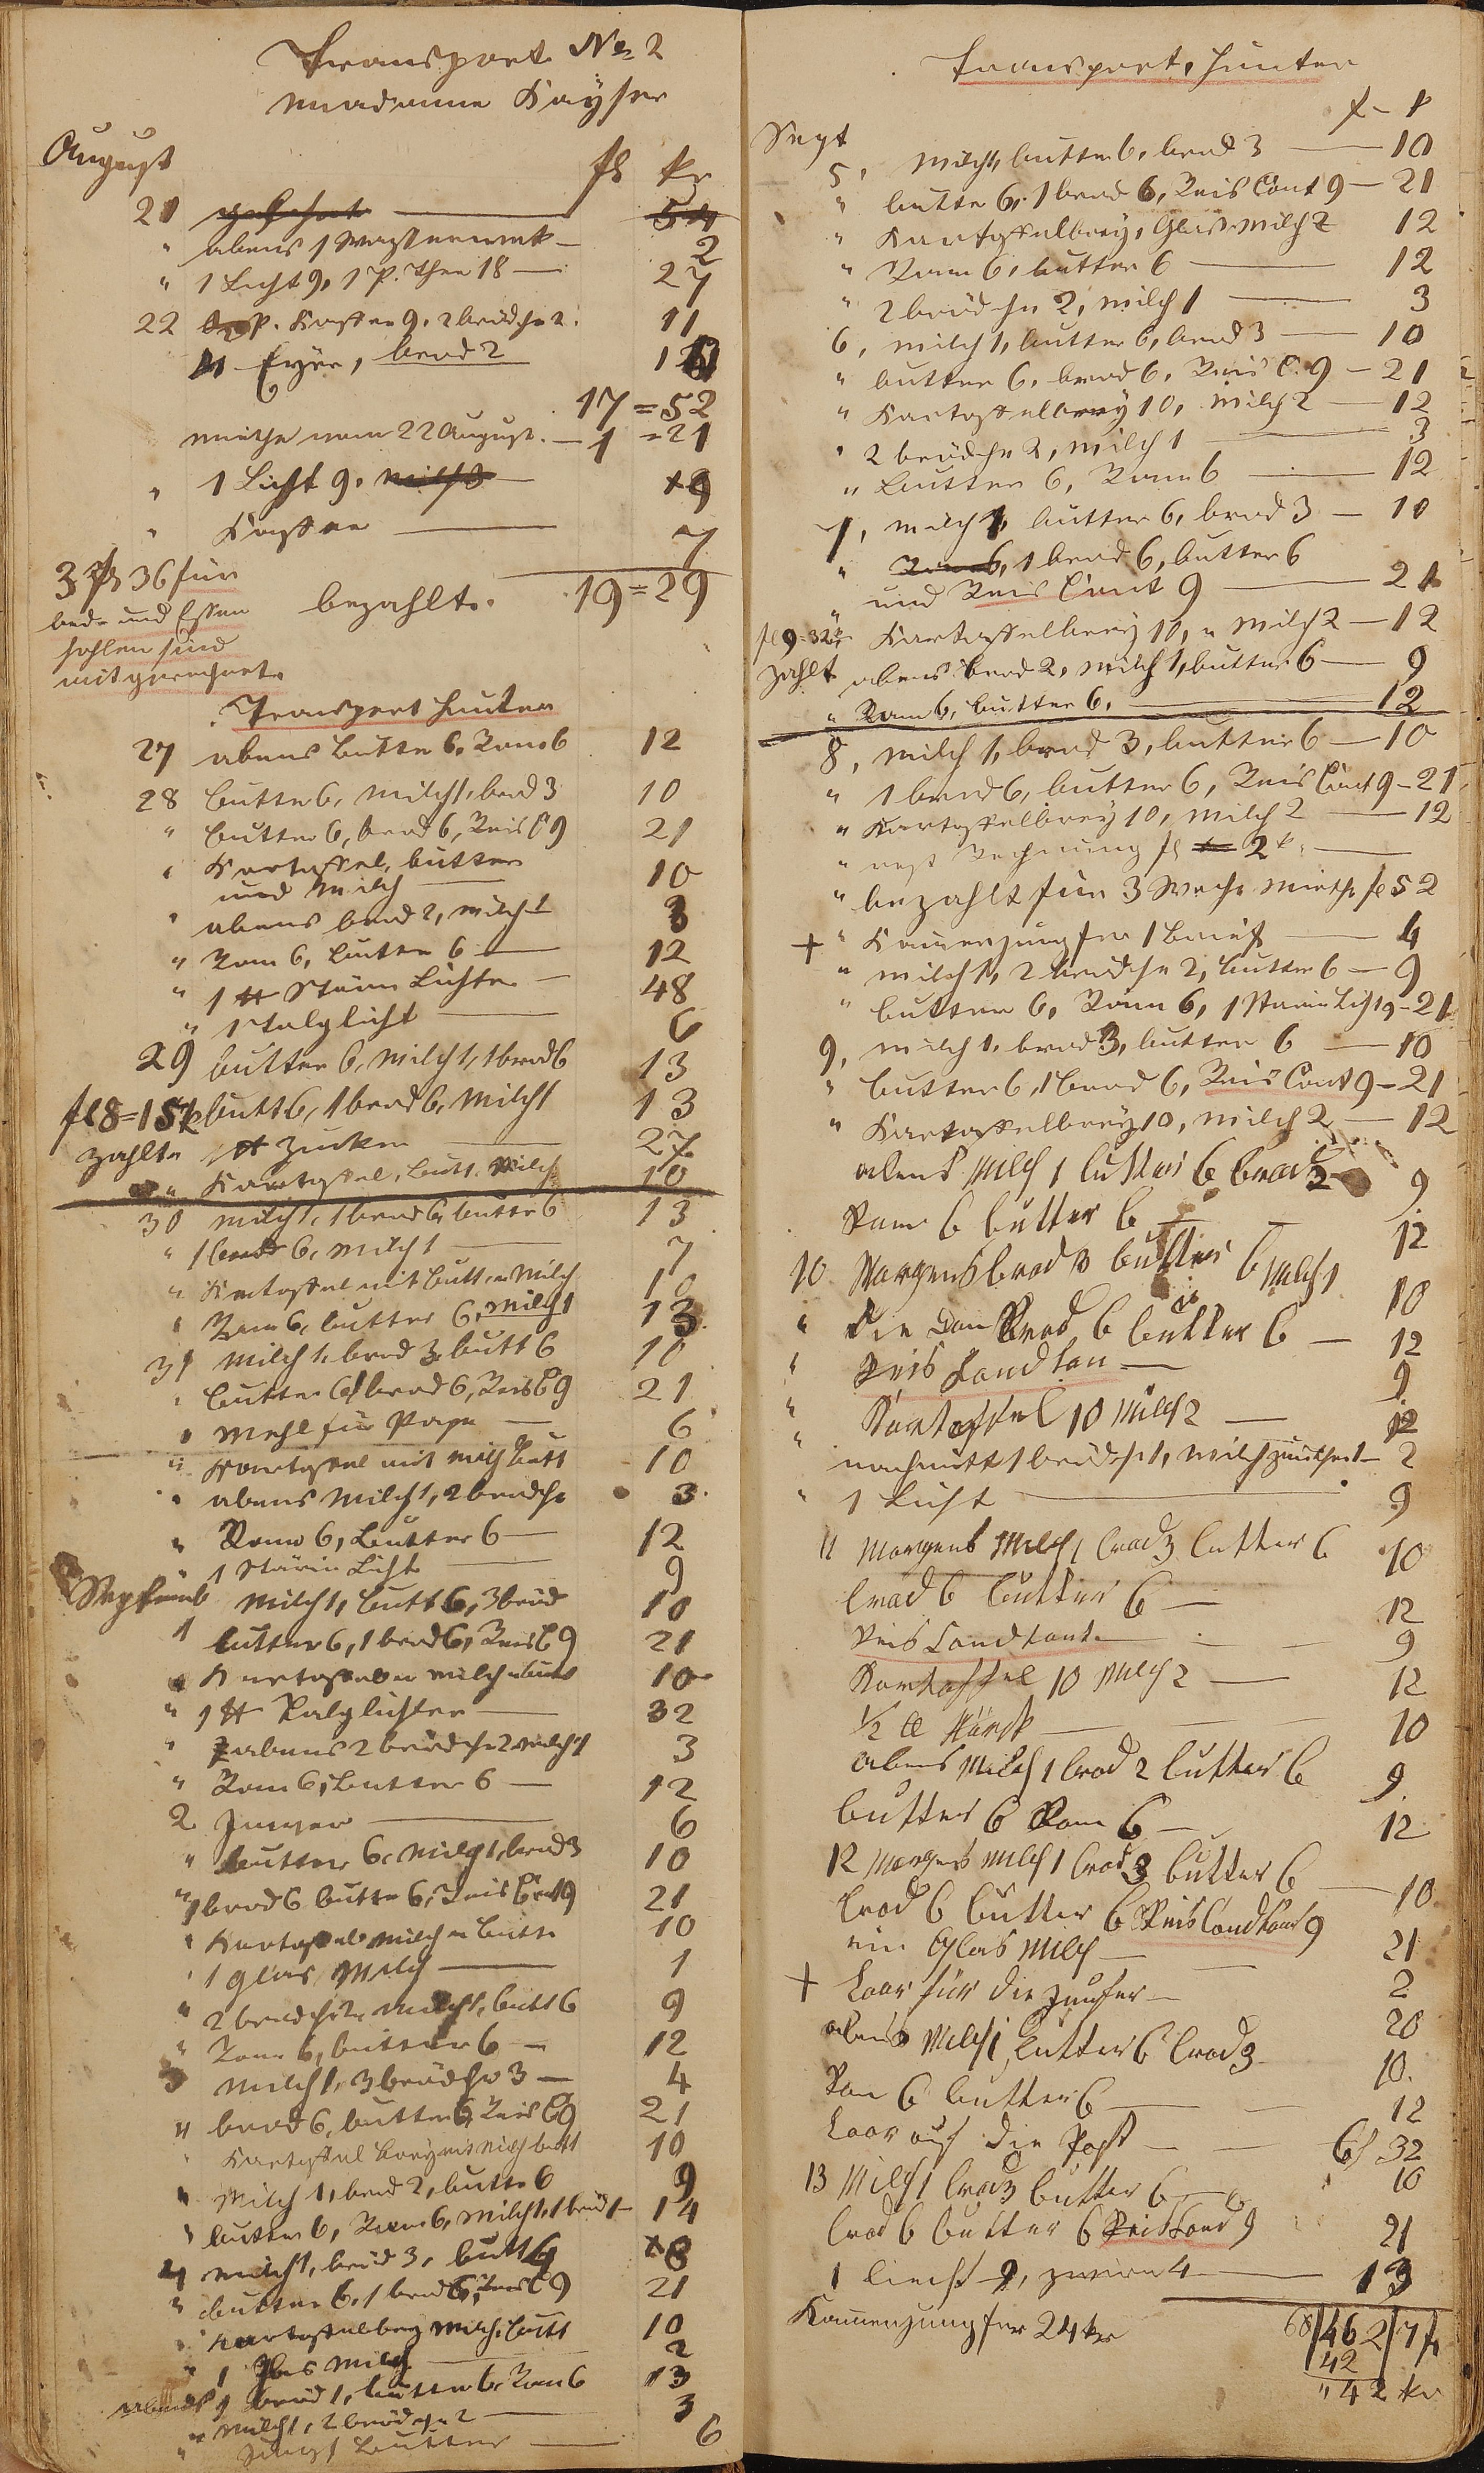 Transport No 2
Madame Kayser
August
fl kr
21 54
" abens 1 2
" 1 Licht 9, 1 P. Thee 18 — 27
22 P. Kaffee 9, 2 brödche 2. 11
Eyer, brod 2
17 = 52
miethe vom 22 August. — 1 = 21
" 1 Licht 9, 9
" Kaffee — 7
bezahlt. 19 = 29
3 fl 36 für
bad und Essen
hohlen sind
mitgerechnet
Transport hinten
27 abens butter 6, Ram 6 12
28 butter 6, milch 1, brod 3 10
" butter 6, brod 6, Reis C 9 21
" Kartoffel, butter
und Milch — 10
" abens brod 2, milch 1 3
" Ram 6, butter 6 — 12
" 1 ℔ Stärin Lichter — 48
" 1 Talglicht — 6
29 butter 6, milch 1, 1 brod 6 13
fl 8 = 15 k butt 6, 1 brod 6, milch 1 13
zahlt ℔ Zucker — 27
" Kartoffel, butt. Milch 10
30 milch 1, 1 brod 6, butter 6 13
" 1 brod 6, milch 1 — 7
" Kartoffel mit butt, u Milch 10
" Ram 6, butter 6, milch 1 13
31 milch 1, brod 3, butt 6 10
" butter 6, 1 brod 6, Reis C 9 21
" Mehl für — 6
" Kartoffel mit milch butt 10
" abens milch 1, 2 brodche 3
" Ram 6, butter 6 — 12
" 1 Stärin Licht — 9
Septemb milch 1, butt 6, 3 bröd 10
1 butter 6, 1 brod 6, Reis C 9 21
" Kartoffel u milch u butt 10
" 1 ℔ Talglichter — 32
" abens 2 brödche 2 milch 1 3
" Ram 6, butter 6 — 12
2 — 6
" butter 6, milch 1, brod 3 10
" 1 brod 6 butter 6, Reis Cont 9 21
" Kartoffel milch u butte 10
" 1 Glas Milch — 1
" 2 brodche 2, milch 1, butt 6 9
" Ram 6, butter 6 — 12
3 milch 1, 3 brödche 3 — 4
" brod 6, butter 6, Reis C 9 21
" Kartoffel brey mit milch butt 10
" Milch 1, brod 2, butter 6 9
" butter 6, Ram 6, milch 1, 1 bröd 1 — 14
4 milch 1, bröd 3, butt 4 8
" butter 6, 1 brod 6, Reis C 9 21
" Kartoffelbrey milch, butt 10
" 1 Glas milch — 2
abends 1 bröd 1, butter 6, Ram 6 13
" milch 1, 2 brödche 2 — 3
" butter — 6
Transport, hinten
f — k
Sept
5, milch 1, butter 6, brod 3 — 10
" butter 6, 1 brod 6, Reis Cont 9 — 21
" Kartoffelbrey, Glas milch 2 12
" Ram 6, butter 6 — 12
" 2 brödche 2, milch 1 — 3
6, milch 1, butter 6, brod 3 — 10
" butter 6, brod 6, Reis C. 9 — 21
" Kartoffelbrey 10, milch 2 — 12
" 2 brödche 2, milch 1 — 3
" butter 6, Ram 6 — 12
7, milch 1, butter 6, brod 3 — 10
" Ram 6, 1 brod 6, butter 6
" und Reis Cont 9 — 21
fl 9 = 32 k Kartoffelbrey 10, u Milch 2 — 12
zahlt abens brod 2, milch 1, butter 6 — 9
" Ram 6, butter 6, — 12
8, milch 1, brod 3, butter 6 — 10
" 1 brod 6, butter 6, Reis Cont 9 — 21
" Kartoffelbrey 10, milch 2 — 12
" rest Rechnung fl 2 k —
" bezahlt für 3 Woche Miethe fl 52
+ " Kamerjungfer 1 brief — 4
" milch 1, 2 brödche 2, butter 6 — 9
" butter 6, Ram 6, 1 Stärin Licht 9 — 21
9, milch 1, brod 3, butter 6 — 10
" butter 6, 1 brod 6, Reis Cont 9 — 21
" Kartoffelbrey 10, milch 2 — 12
abens Milch 1 butter 6 brod 2 9
Ram 6 butter 6 — 12
10 Morgens brod 3 butter 6 Milch 1 10
" Brod 6 butter 6 — 12
" Reis — 9
" Kartoffel 10 Milch 2 — 12
" nachmitt 1 brödche 1, milch 2
" 1 Licht — 9
11 Morgens Milch 1 brod 3 butter 6 10
brod 6 butter 6 — 12
Reis Condtont — 9
Kartoffel 10 Milch 2 — 12
1/2 ℔ — 10
abens Milch 1 brod 2 butter 6 9
butter 6 Ram 6 — 12
12 Morgens Milch 1 brod 3 butter 6 — 10
brod 6 butter 6 Reis Condtont 9 21
ein Glas Milch — 2
+ für die — 20
abens Milch 1 butter 6 brod 3 10
Ram 6 butter 6 — 12
auf die Post — 6 f 32
13 Milch 1 brod 3 butter 6 — 10
brod 6 butter 6 Reis Cond 9 21
1 Liecht 9, 4 — 13
Kamerjungfer 24 kr 60/462/7 f
42
" 42 kr